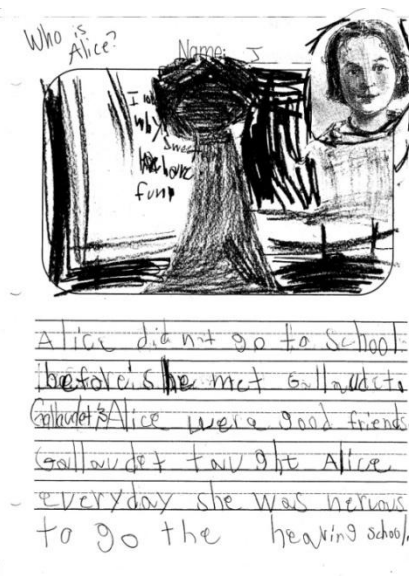 Who is
Alice?
Name: J
why
have
fun
Alice didn't go to School
before she met Gallaudet.
Gallaudet & Alice were good friends
Gallaudet taught Alice
everyday she was nervous
to go the hearing school.